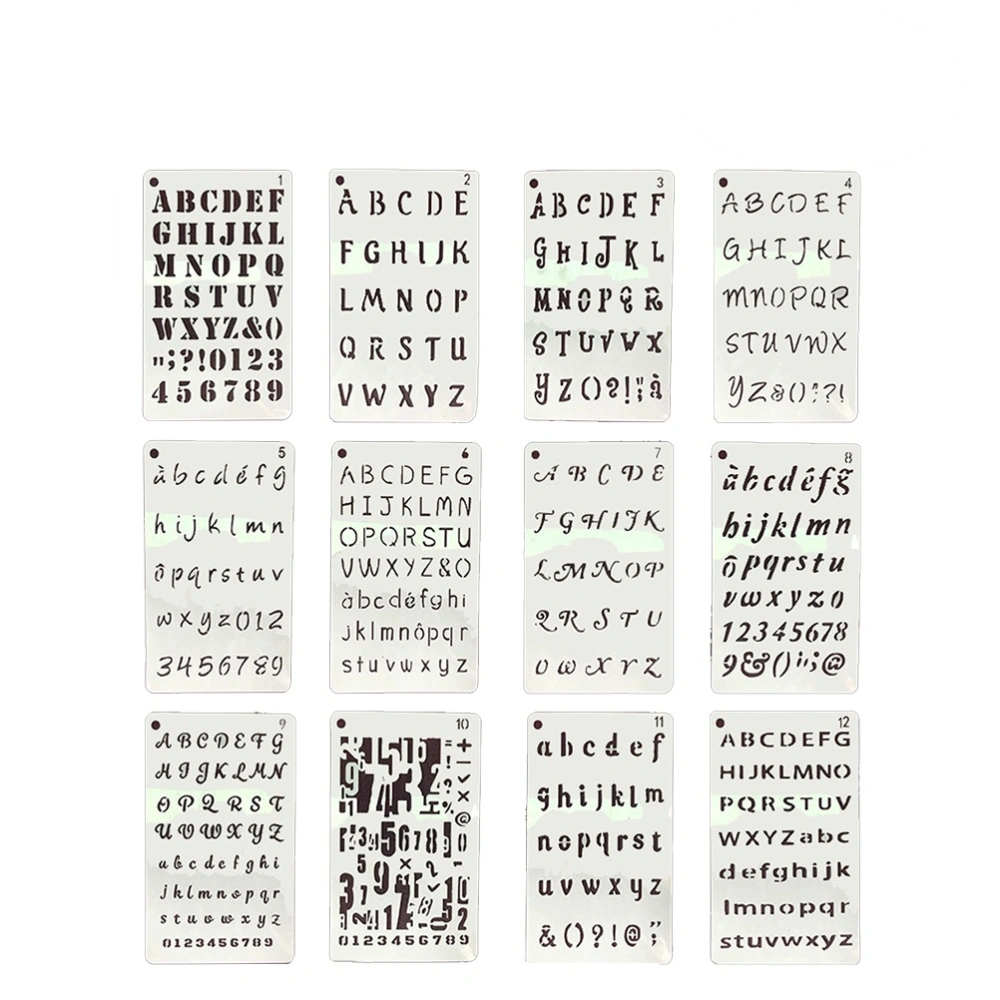 1
ABCDEF
GHIJKL
MNOPQ
RSTUV
WXYZ&()
";?!0123
456789
2
ABCDE
FGHIJK
LMNOP
QRSTU
VWXYZ
3
ABCDEF
GHIJKL
MNOPQR
STUVWX
YZ()?!";à
4
ABCDEF
GHIJKL
MNOPQR
STUVWX
YZ&();?!
5
àbcdéfg
hijklmn
ôpqrstuv
wxyz012
3456789
6
ABCDEFG
HIJKLMN
OPQRSTU
VWXYZ&()
àbcdéfghi
jklmnôpqr
stuvwxyz
7
ABCDE
FGHIJK
LMNOP
QRSTU
VWXYZ
8
àbcdéfg
hijklmn
ôpqrstu
vwxyz0
12345678
9&()";@
9
ABCDEFG
HIJKLMN
OPQRST
UVWXYZ
abcdefghi
jklmnopqr
stuvwxyz
0123456789
10
0123456789
11
abcdef
ghijklm
nopqrst
uvwxyz
&()?!@";
12
ABCDEFG
HIJKLMNO
PQRSTUV
WXYZabc
defghijk
lmnopqr
stuvwxyz